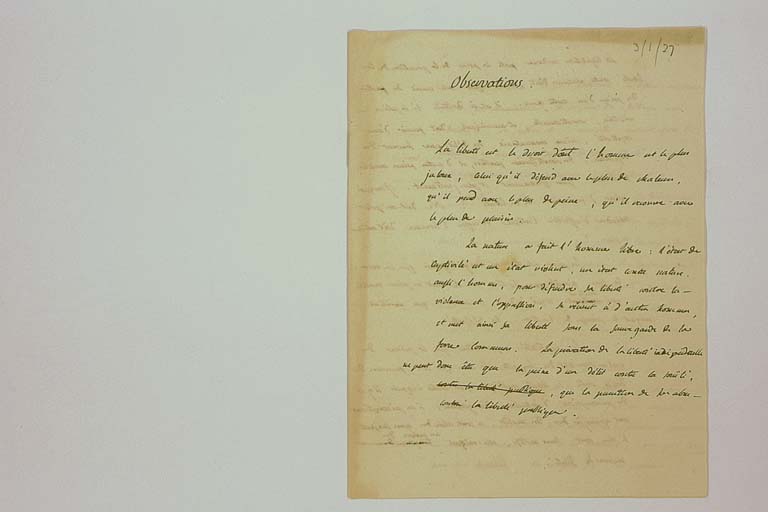 3/1/27
Observations.
La liberté est le droit dont l'homme est le plus
jaloux, celui qu'il défend avec le plus de chaleur,
qu'il perd avec le plus de peine, qu'il recouvre avec
le plus de plaisir.
La nature a fait l'homme libre : l'état de
captivité est un état violent, un état contre nature.
aussi l'homme, pour défendre sa liberté contre la
violence et l'oppression, se réunit à d'autres hommes,
et met ainsi sa liberté sous la sauvegarde de la
force commune. La privation de la liberté individuelle
ne peut donc être que la peine d'un délit contre la
contre la liberté publique, que la punition de son abus
contre la liberté publique.